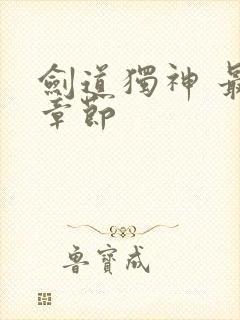 劍道獨神 最
章節
魯寶成